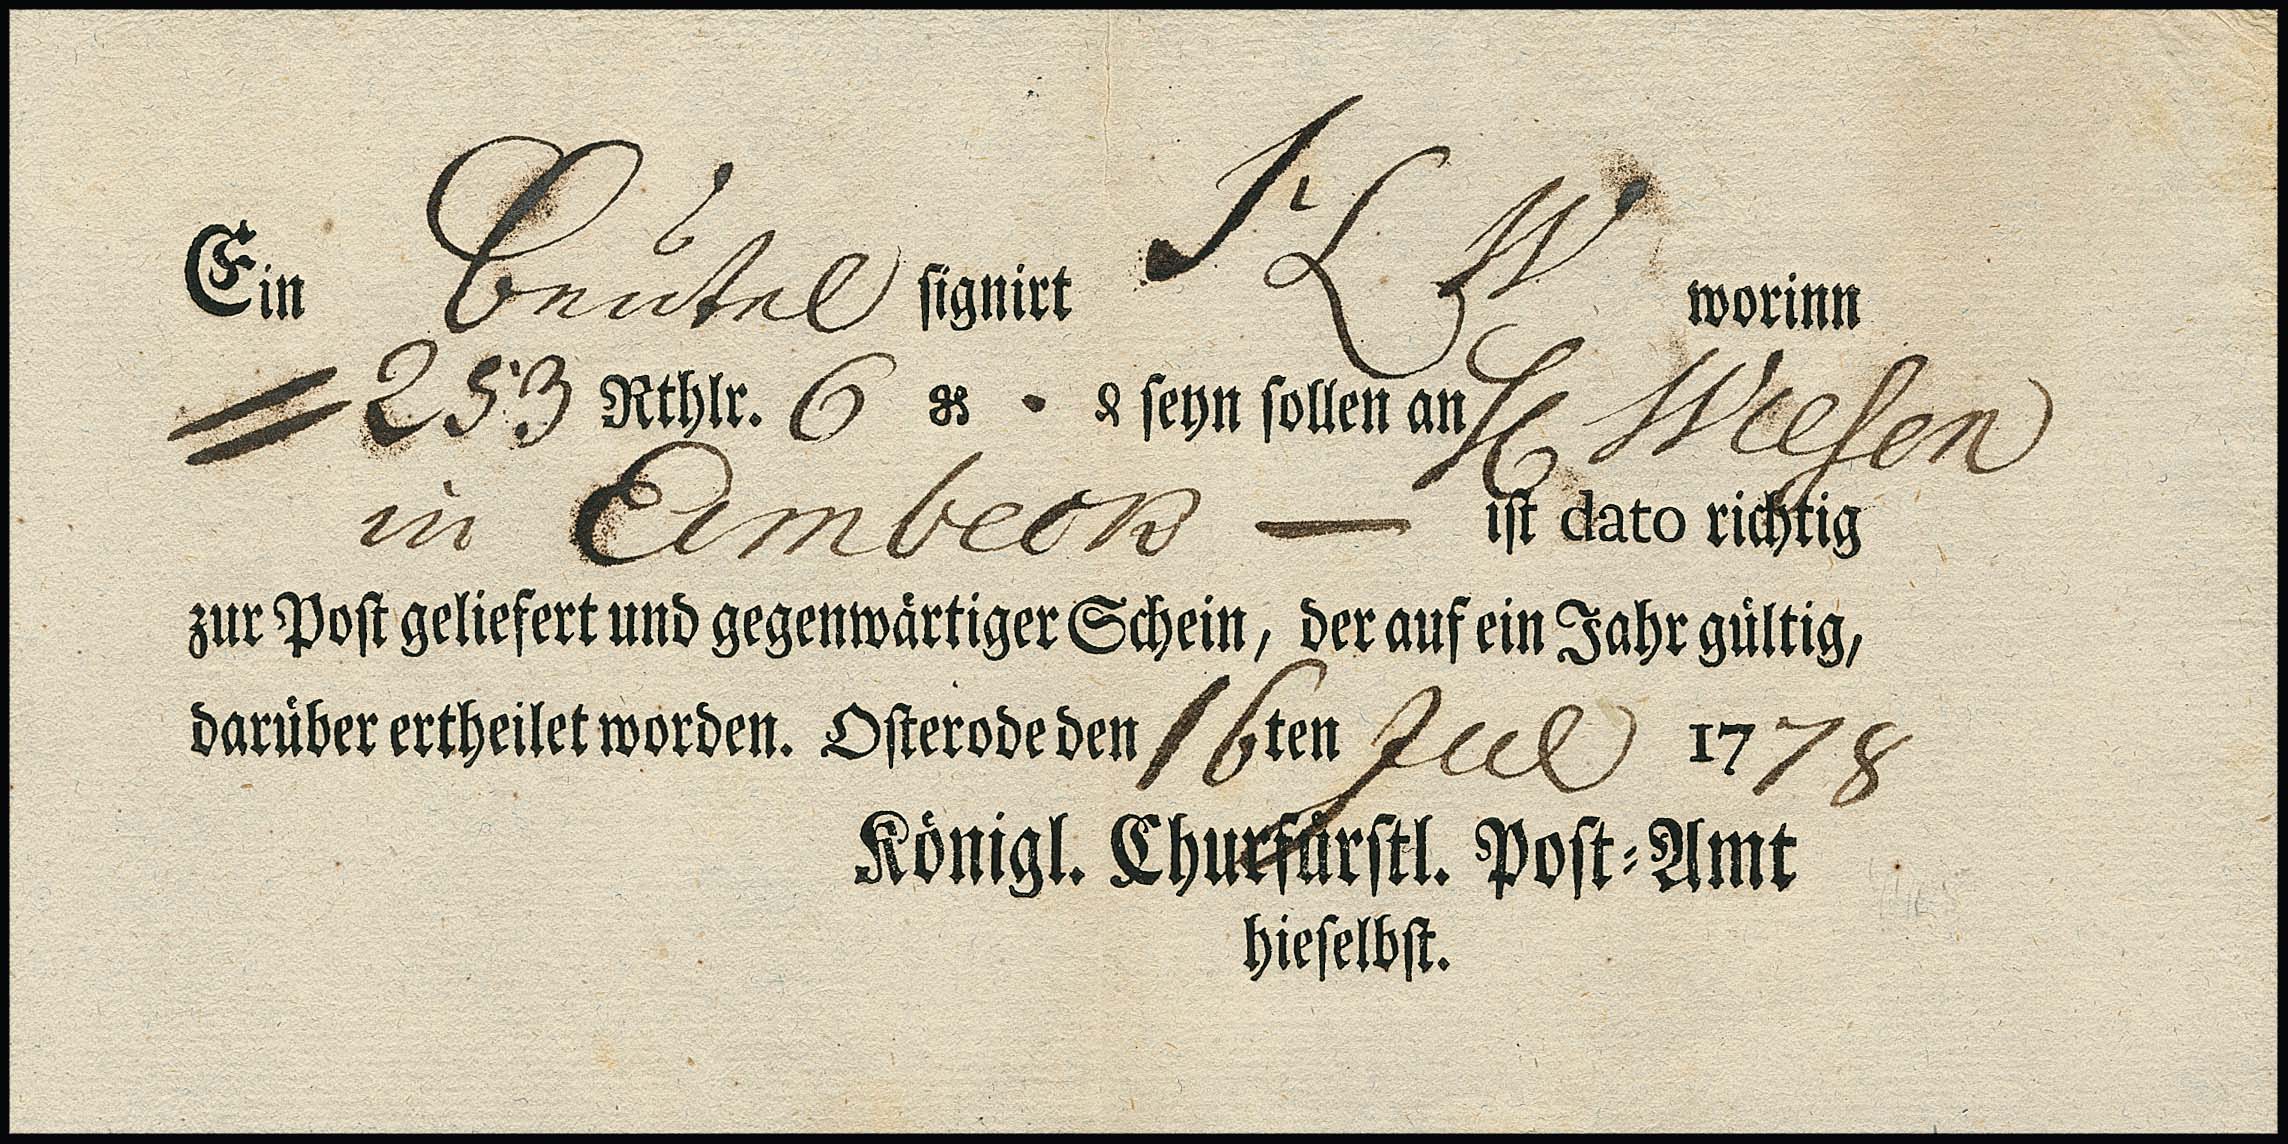 Ein Beutel signirt J L W worinn
253 Rthlr. 6 seyn sollen an H Wiesen
in Eimbeck — ist dato richtig
zur Post geliefert und gegenwärtiger Schein, der auf ein Jahr gültig,
darüber ertheilet worden. Osterode den 16ten Jul 1778
Königl. Churfürstl. Post-Amt
hieselbst.